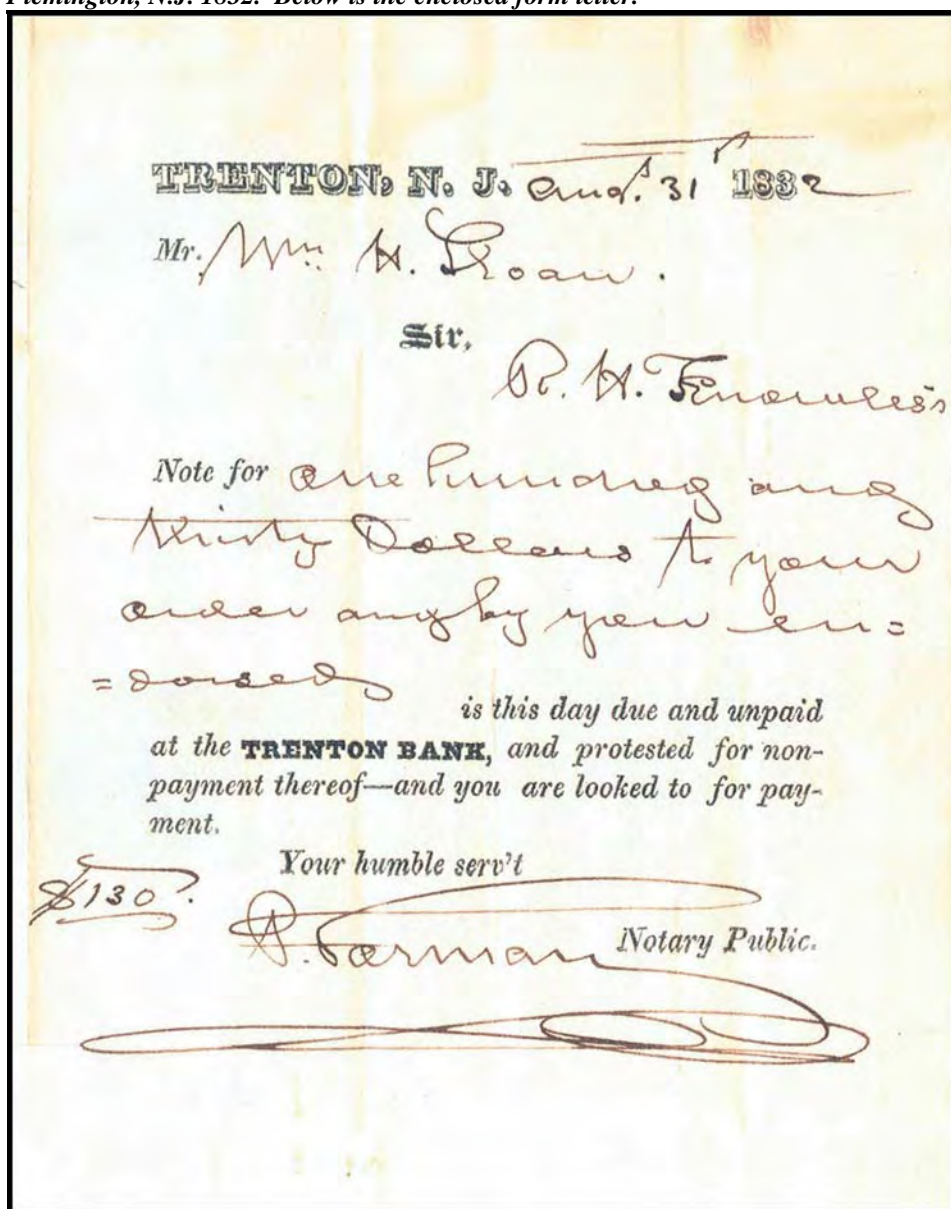 Flemington, N.J. 1832. Below is the enclosed form letter.
TRENTON, N. J. Augt. 31st 1832
Mr. Wm. H. Sloan.
Sir,
R. H.
Note for One hundred and
thirty Dollars to your
order and by you en=
=dorsed
is this day due and unpaid
at the TRENTON BANK, and protested for non-
payment thereof—and you are looked to for pay-
ment.
Your humble serv't
$130.
P. Forman Notary Public.